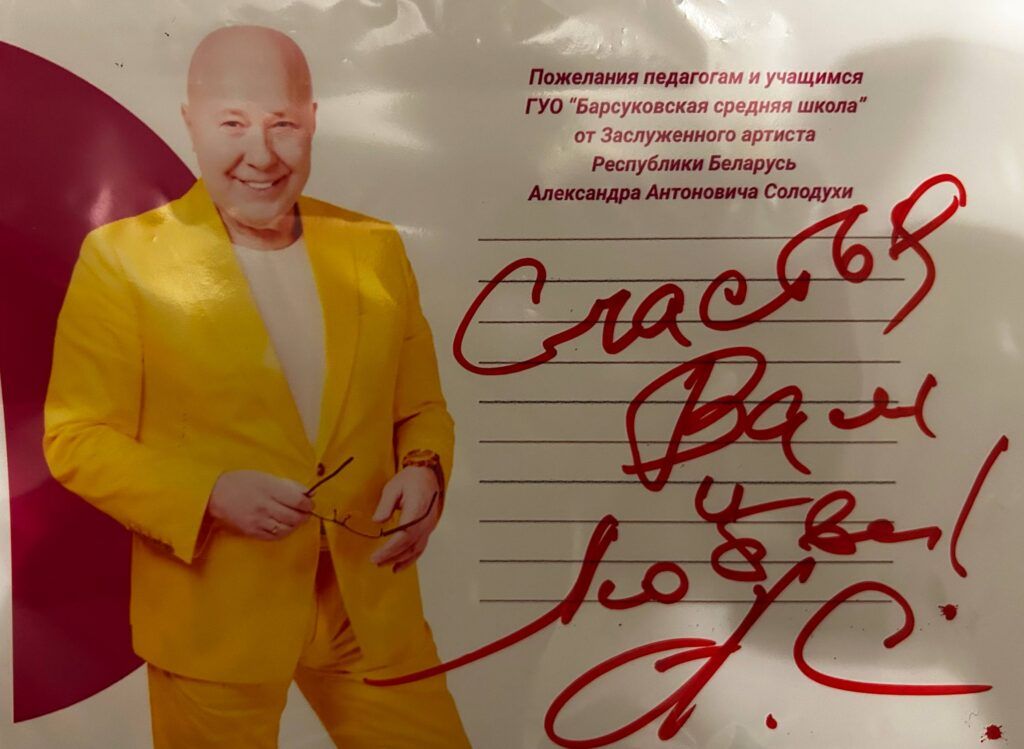 Пожелания педагогам и учащимся
ГУО "Барсуковская средняя школа"
от Заслуженного артиста
Республики Беларусь
Александра Антоновича Солодухи
Счастья
Вам
и
Любви!
А.С.